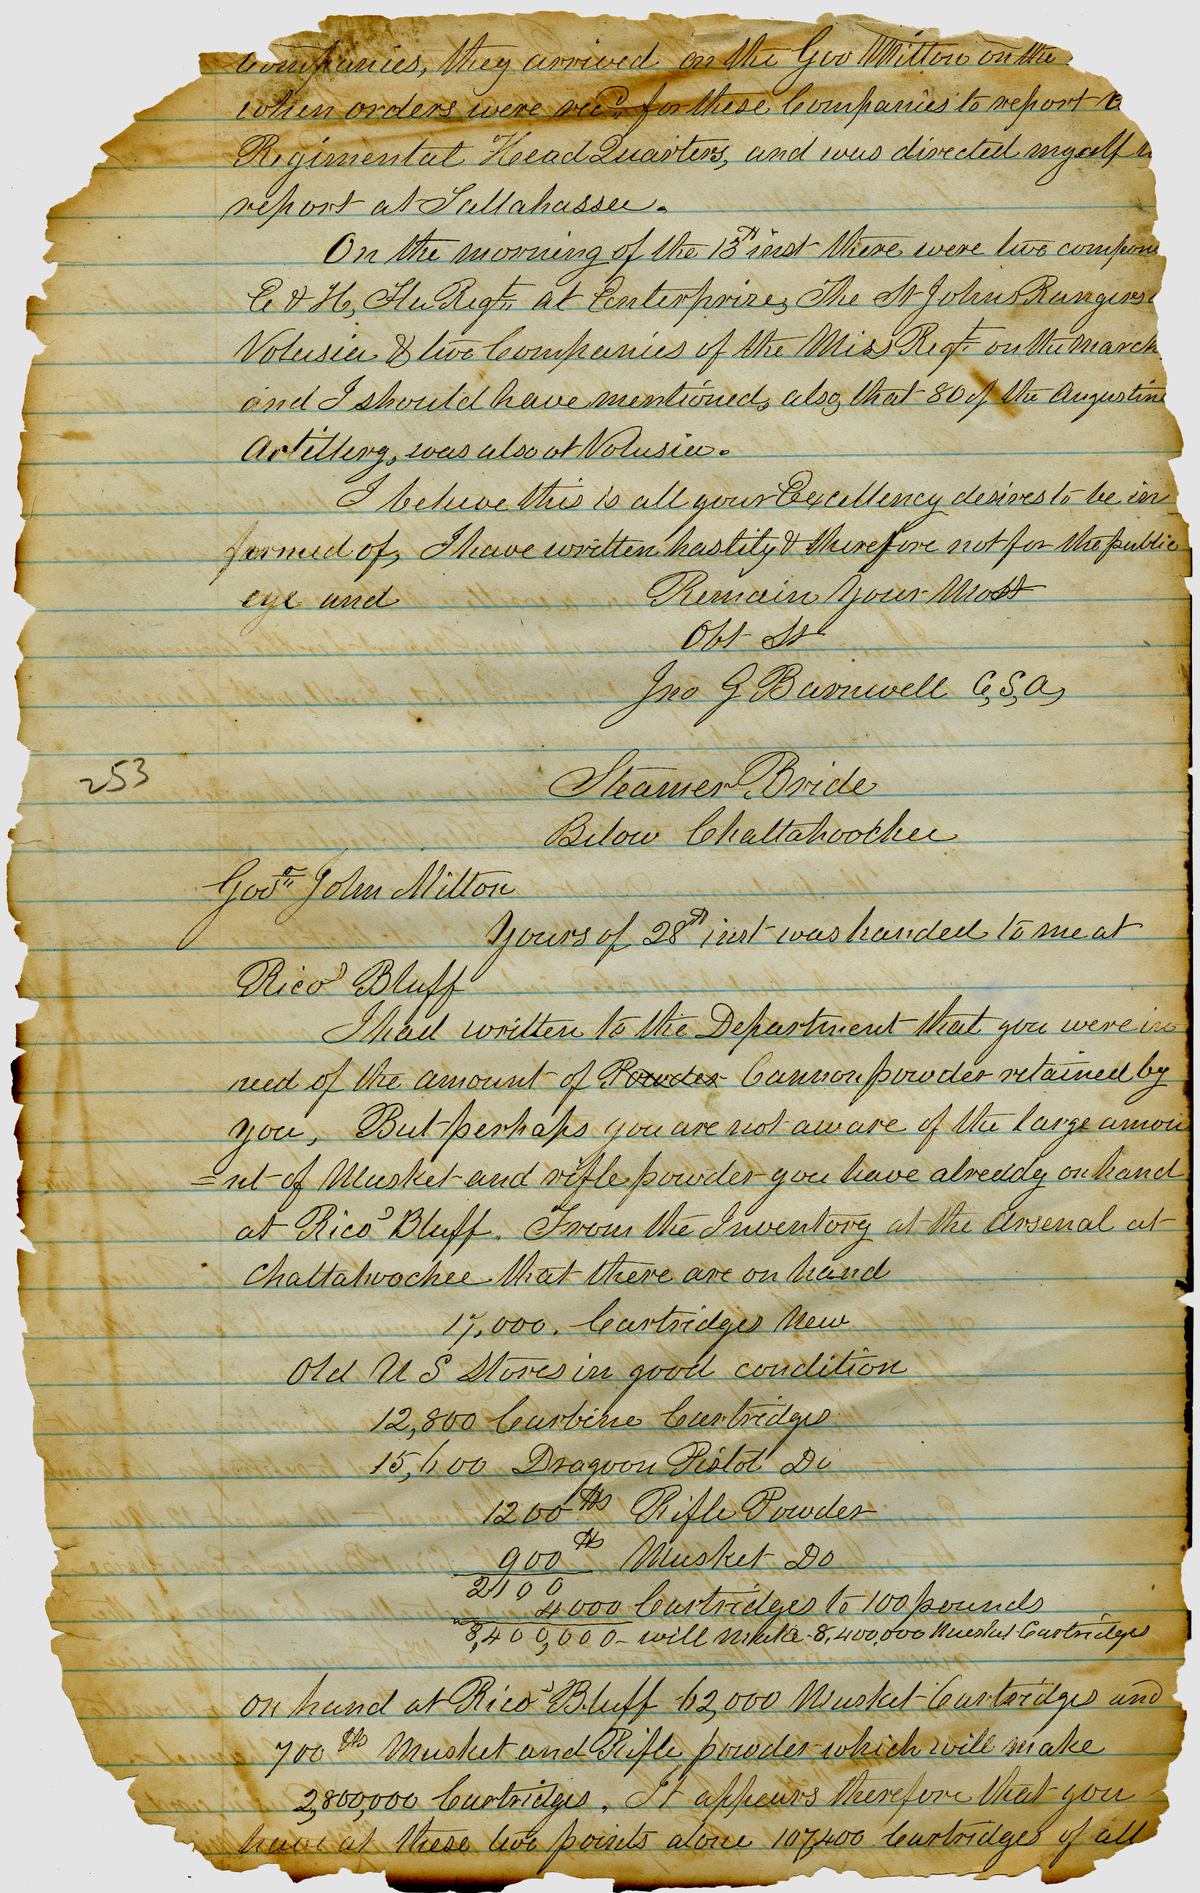 Companies, they arrived on the Gov Milton on the
when orders were recd. for these Companies to report
Regimental Head Quarters, and was directed myself to
report at Tallahassee.
On the morning of the 13th inst there were two compan
E & H, Fla Regt. at Enterprize, The St Johns Rangers
Volusia & two Companies of the Miss Regt. on the march
and I should have mentioned, also, that 80 of the Augustine
Artillery, was also at Volusia.
I believe this is all your Excellency desires to be in
formed of, I have written hastily & therefore not for the public
eye and Remain Your Most
Obt St
Jno G Barnwell C,S,A,
253
Steamer Bride
Below Chattahoochee
Govor John Milton
Yours of 28th inst was handed to me at
Rico's Bluff
I had written to the Department that you were in
need of the amount of Powder Cannon powder retained by
you, But perhaps you are not aware of the large amou
=nt of Musket and rifle powder you have already on hand
at Rico's Bluff. From the Inventory at the Arsenal at
Chattahoochee that there are on hand
17,000. Cartridges New
Old U S Stores in good condition
12,800 Carbine Cartridges
15,600 Dragoon Pistol Do
1200 lbs Rifle Powder
900 lb Musket Do
2100
4000 Cartridges to 100 pounds
8,400,000 - will make 8,400,000 Musket Cartridges
On hand at Rico's Bluff 62,000 Musket Cartridges and
700 lbs Musket and Rifle powder which will make
2,800,000 Cartridges. It appears therefore that you
have at these two points alone 107,400 Cartridges of all